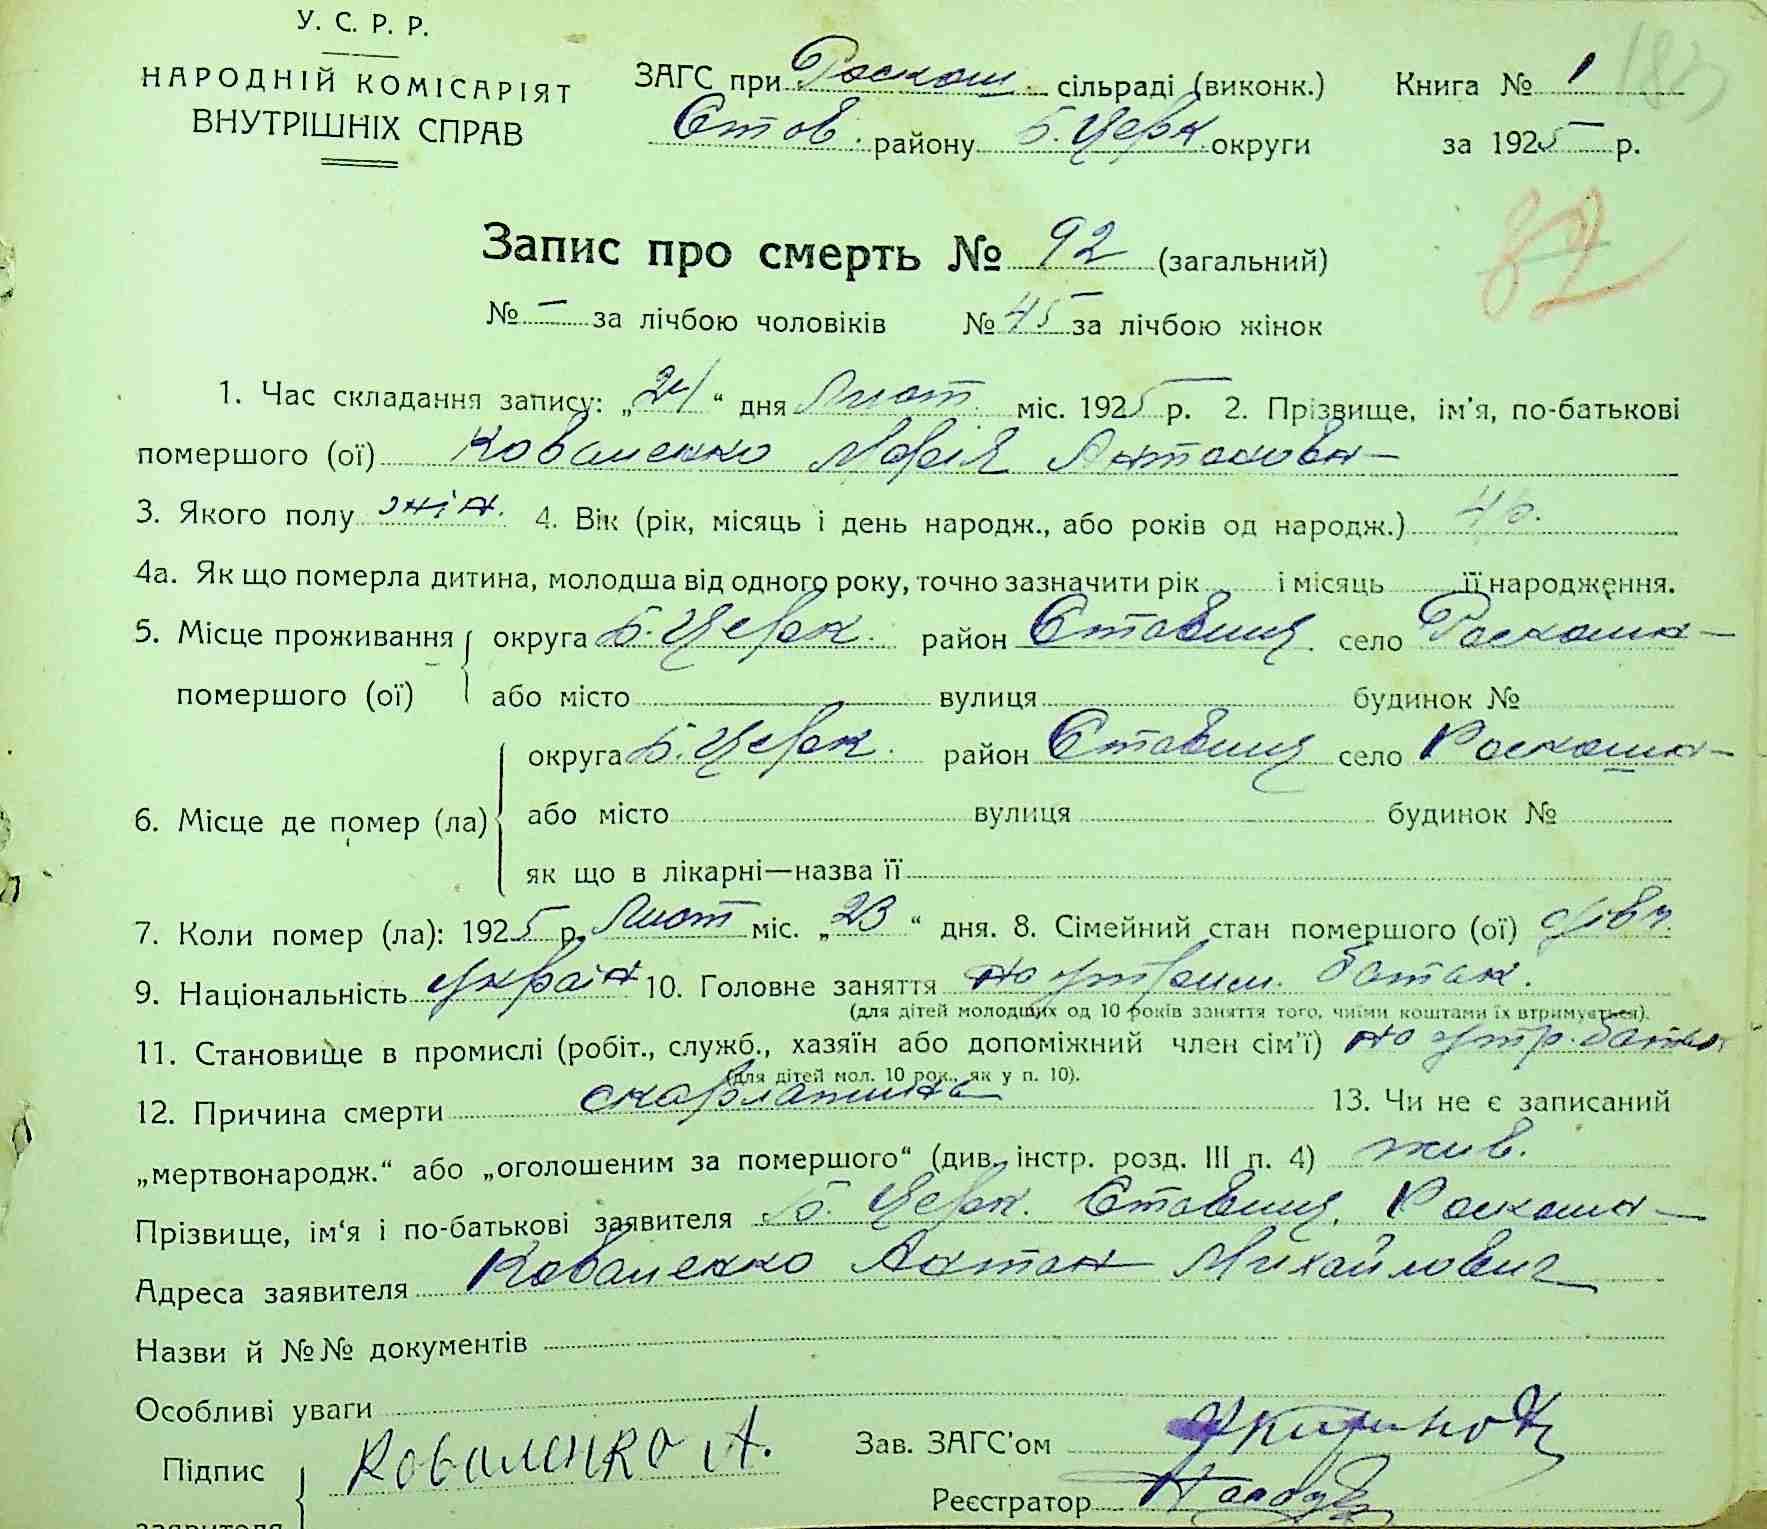 У. С. Р. Р.
НАРОДНІЙ КОМІСАРІЯТ
ВНУТРІШНІХ СПРАВ
ЗАГС при Роскош. сільраді (виконк.) Книга № 1 183
Став. району Б. Церк. округи за 1925 р.
Запис про смерть № 92 (загальний)
82
№ — за лічбою чоловіків № 45 за лічбою жінок
1. Час складання запису: „24“ дня Лют. міс. 1925 р. 2. Прізвище, ім'я, по-батькові
помершого (ої) Коваленко Марія Антоновн
3. Якого полу жін. 4. Вік (рік, місяць і день народж., або років од народж.) 4 р.
4а. Як що померла дитина, молодша від одного року, точно зазначити рік і місяць її народження.
5. Місце проживання округа Б. Церк. район Ставищ село Роскошн
помершого (ої) або місто вулиця будинок №
округа Б. Церк. район Ставищ село Роскошн
6. Місце де помер (ла) або місто вулиця будинок №
як що в лікарні—назва її
7. Коли помер (ла): 1925 р. Лют міс. „23“ дня. 8. Сімейний стан помершого (ої) дівч.
9. Національність україн 10. Головне заняття на утрим. батьк.
(для дітей молодщих од 10 років заняття того, чиїми коштами їх втримується).
11. Становище в промислі (робіт., служб., хазяїн або допоміжний член сім'ї) на утр. батьк
(для дітей мол. 10 рок., як у п. 10).
12. Причина смерти скарлатина 13. Чи не є записаний
„мертвонародж.“ або „оголошеним за помершого“ (див. інстр. розд. III п. 4) жив.
Прізвище, ім'я і по-батькові заявителя Б. Церк. Ставищ. Роскошн
Адреса заявителя Коваленко Антон Михайлович
Назви й №№ документів
Особливі уваги
Підпис Коваленко А. Зав. ЗАГС'ом
заявителя Реєстратор